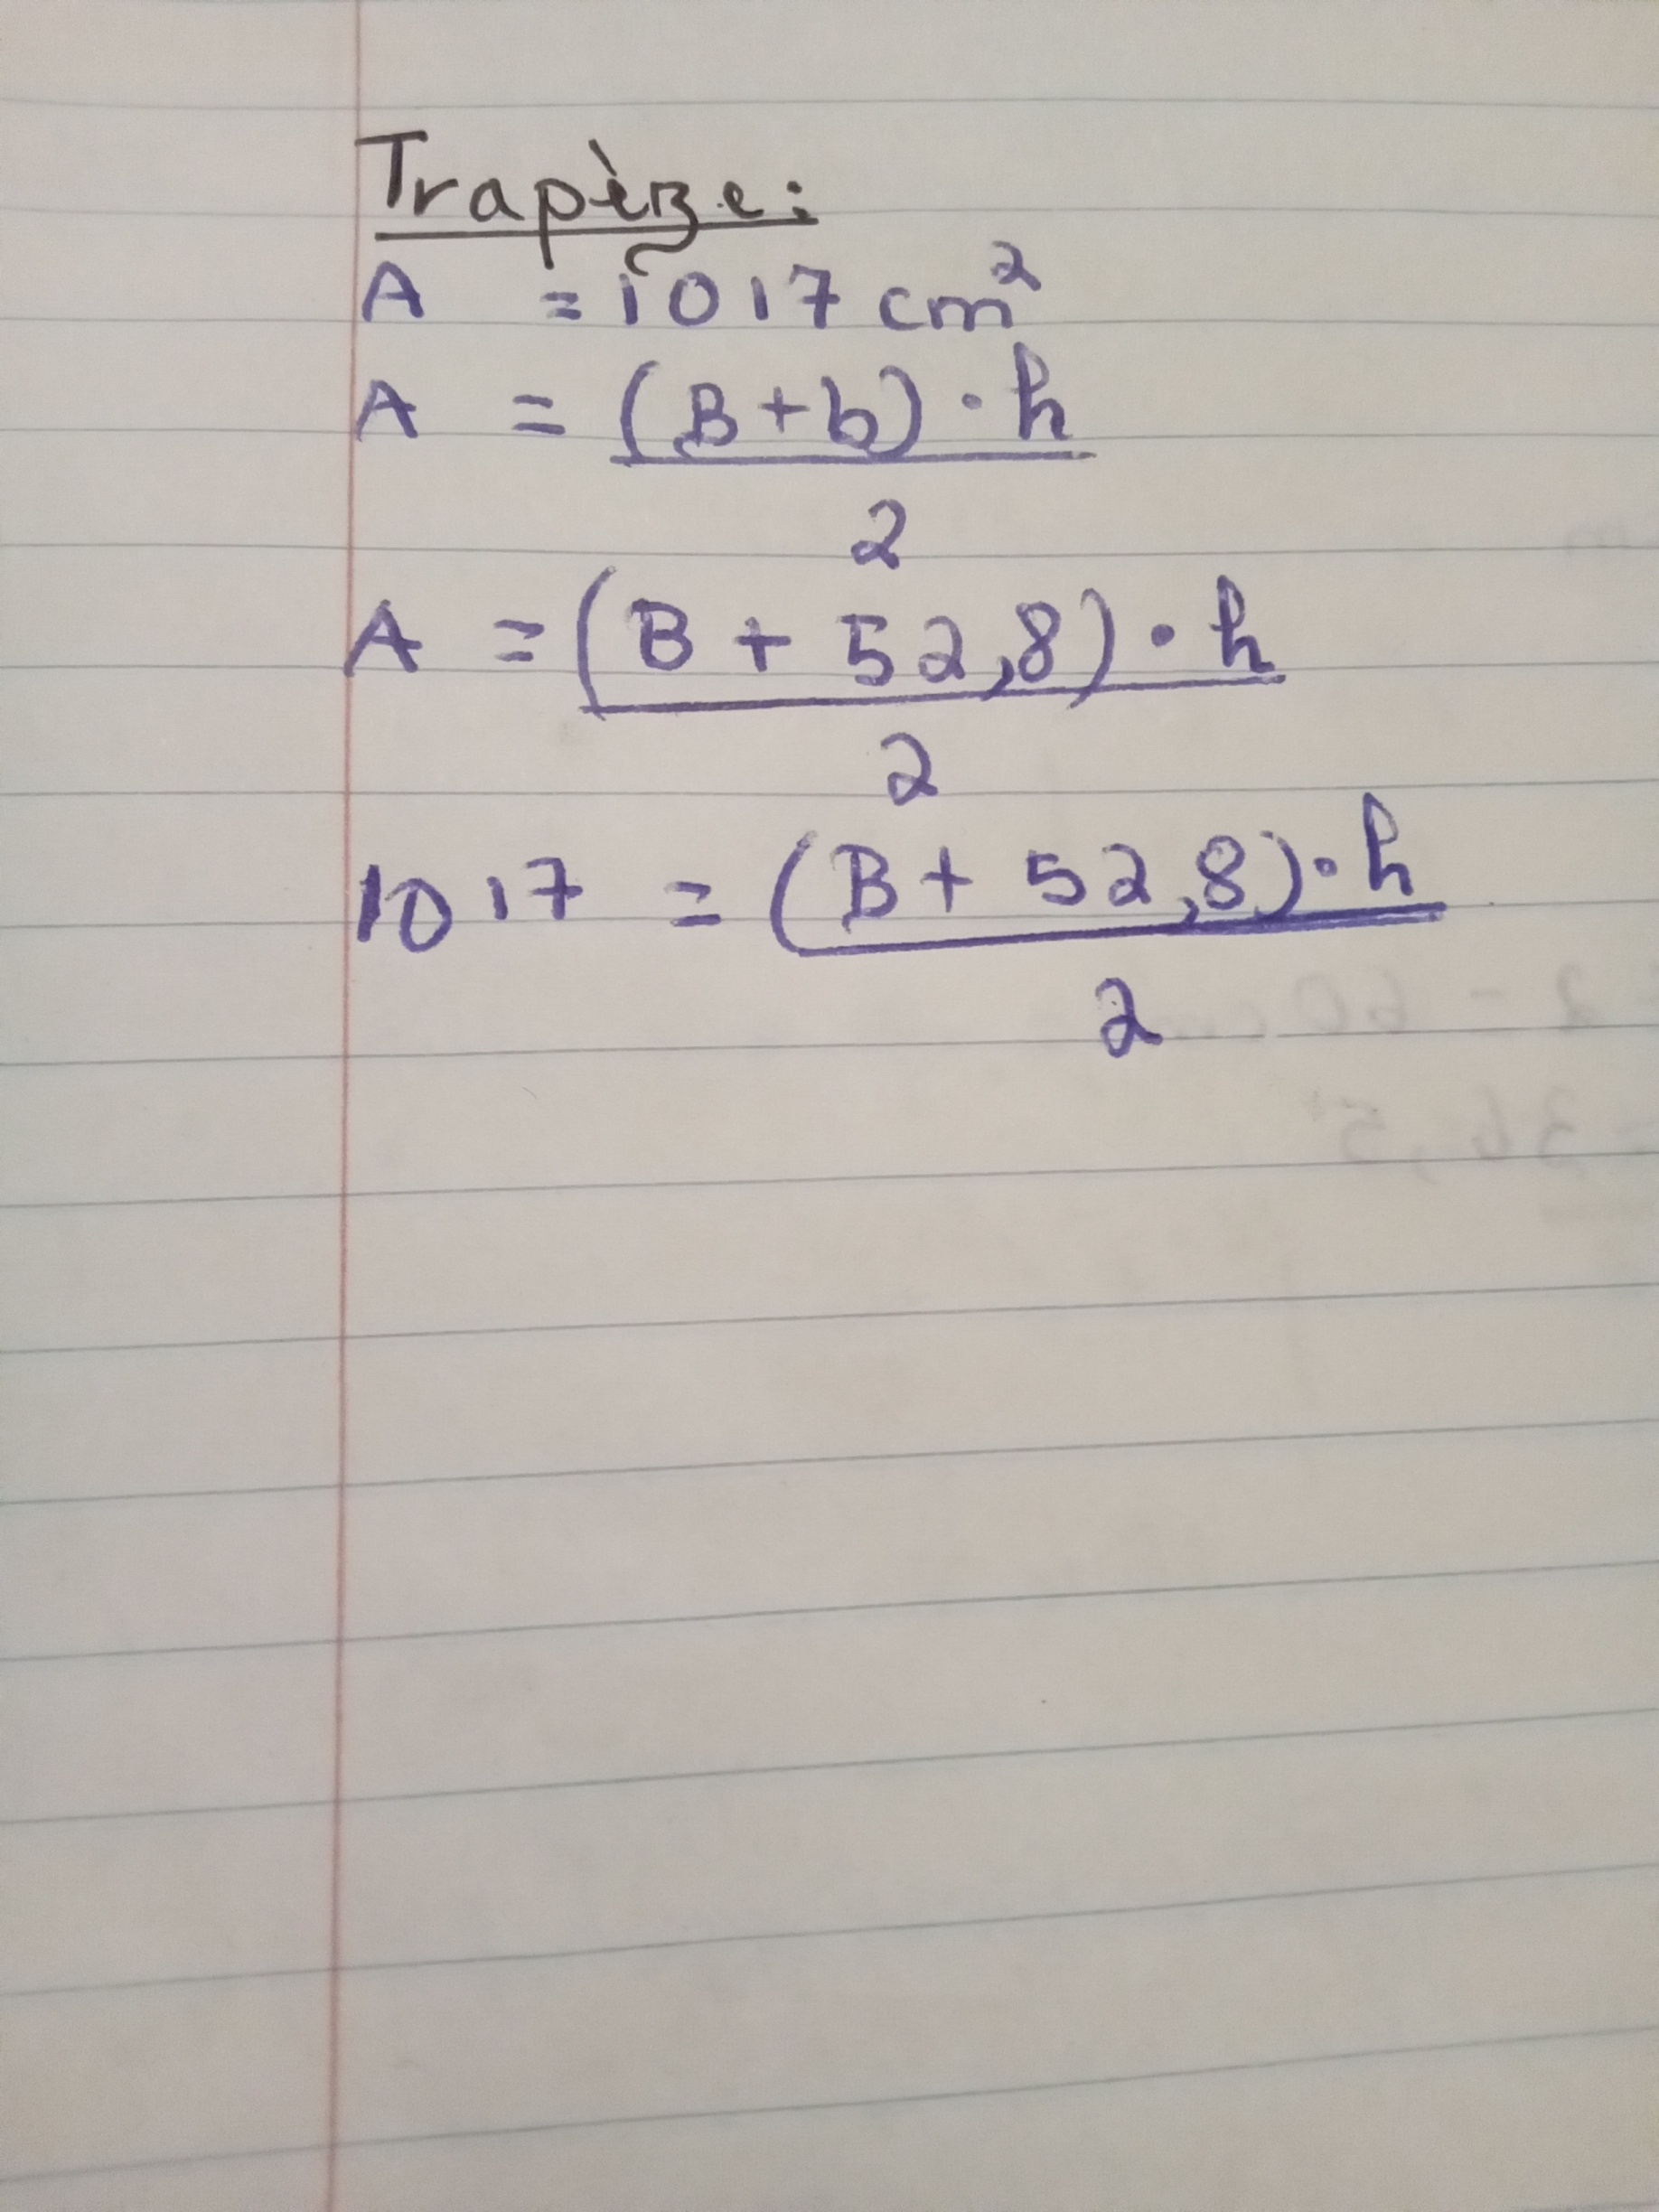 Trapèze:
A = 1017 cm²
A = (B+b) · h
2
A = (B + 52,8) · h
2
1017 = (B + 52,8) · h
2